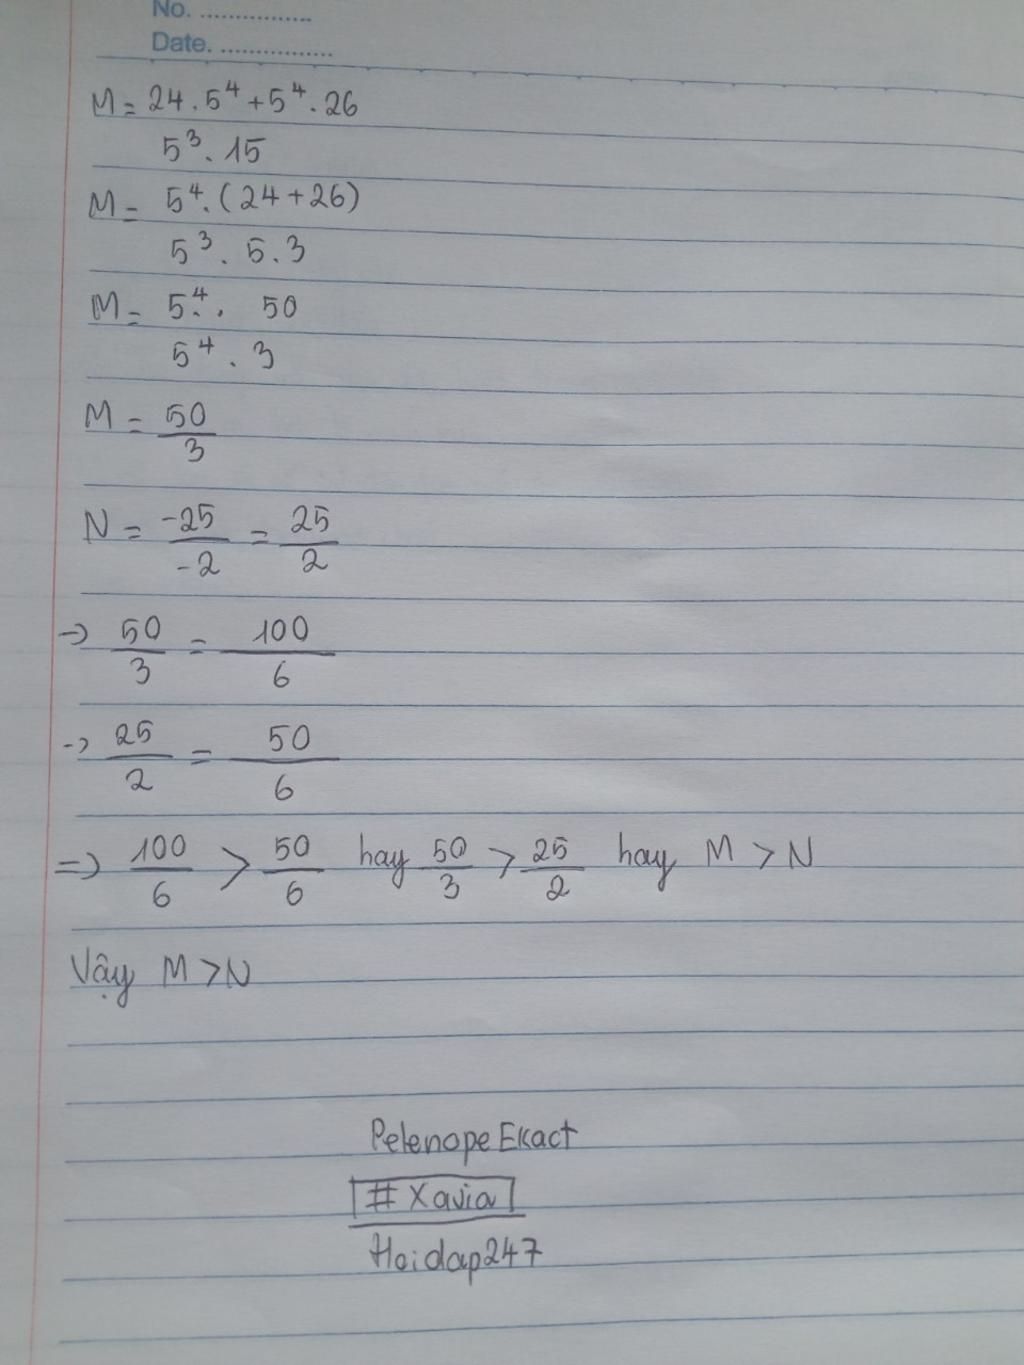 No. ................
Date. ................
M = 24 . 5⁴ + 5⁴ . 26
5³ . 15
M = 5⁴ . (24 + 26)
5³ . 5 . 3
M = 5⁴ . 50
5⁴ . 3
M = 50
3
N = -25 = 25
-2 2
-> 50 = 100
3 6
-> 25 = 50
2 6
=> 100 > 50 hay 50 > 25 hay M > N
6 6 3 2
Vậy M > N
Pelenope Ekact
# Xavia
Hoidap247